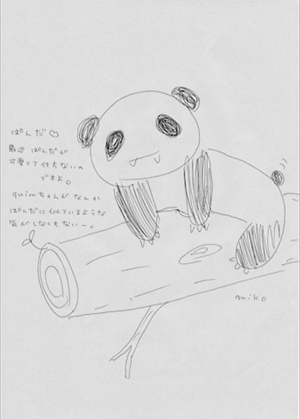 ぱんだ♡
最近 ぱんだが
可愛くて仕方ないの
ですよ。
quimちゃんがなんか
ぱんだに似ているような
気がしなくもない〜。
miko